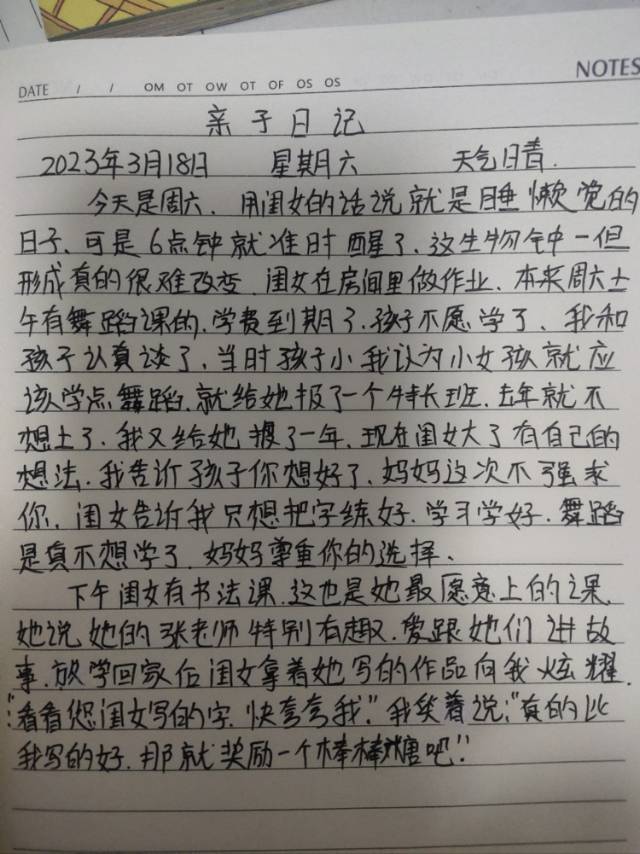 NOTES
DATE / / OM OT OW OT OF OS OS
亲子日记
2023年3月18日 星期六 天气日青.
今天是周六. 用闺女的话说就是睡懒觉的
日子、可是6点钟就准时醒了、这生物钟一但
形成真的很难改变 闺女在房间里做作业. 本来周六上
午有舞蹈课的. 学费到期了. 孩子不愿学了、我和
孩子认真谈了. 当时孩子小我认为小女孩就应
该学点舞蹈. 就给她报了一个特长班. 去年就不
想上了. 我又给她报了一年. 现在闺女大了有自己的
想法. 我告诉孩子你想好了、妈妈这次不强求
你. 闺女告诉我只想把字练好. 学习学好. 舞蹈
是真不想学了. 妈妈尊重你的选择、
下午闺女有书法课. 这也是她最愿意上的课
她说她的张老师特别有趣. 爱跟她们讲故
事. 放学回家后闺女拿着她写的作品向我炫耀.
"看看您闺女写的字. 快夸夸我." 我笑着说:"真的比
我写的好. 那就奖励一个棒棒糖吧!"